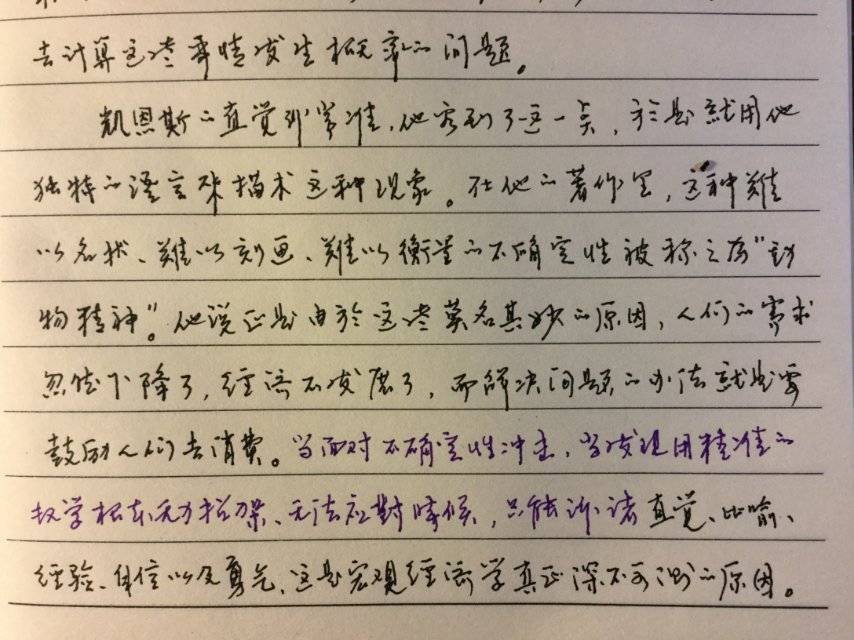 去计算这些事情发生概率的问题。
凯恩斯的直觉非常准,他看到了这一点,於是就用他
独特的语言来描术这种现象。在他的著作里,这种难
以名状、难以刻画、难以衡量的不确定性被称之为“动
物精神”。他说正是由於这些莫名其妙的原因,人们的需求
忽然下降了,经济不发展了,而解决问题的办法就是要
鼓励人们去消费。当面对不确定性冲击,当发现用精准的
数学根本无力招架、无法应對時候,只能诉诸直觉、比喻、
经验、自信以及勇气,这是宏观经济学真正深不可测的原因。